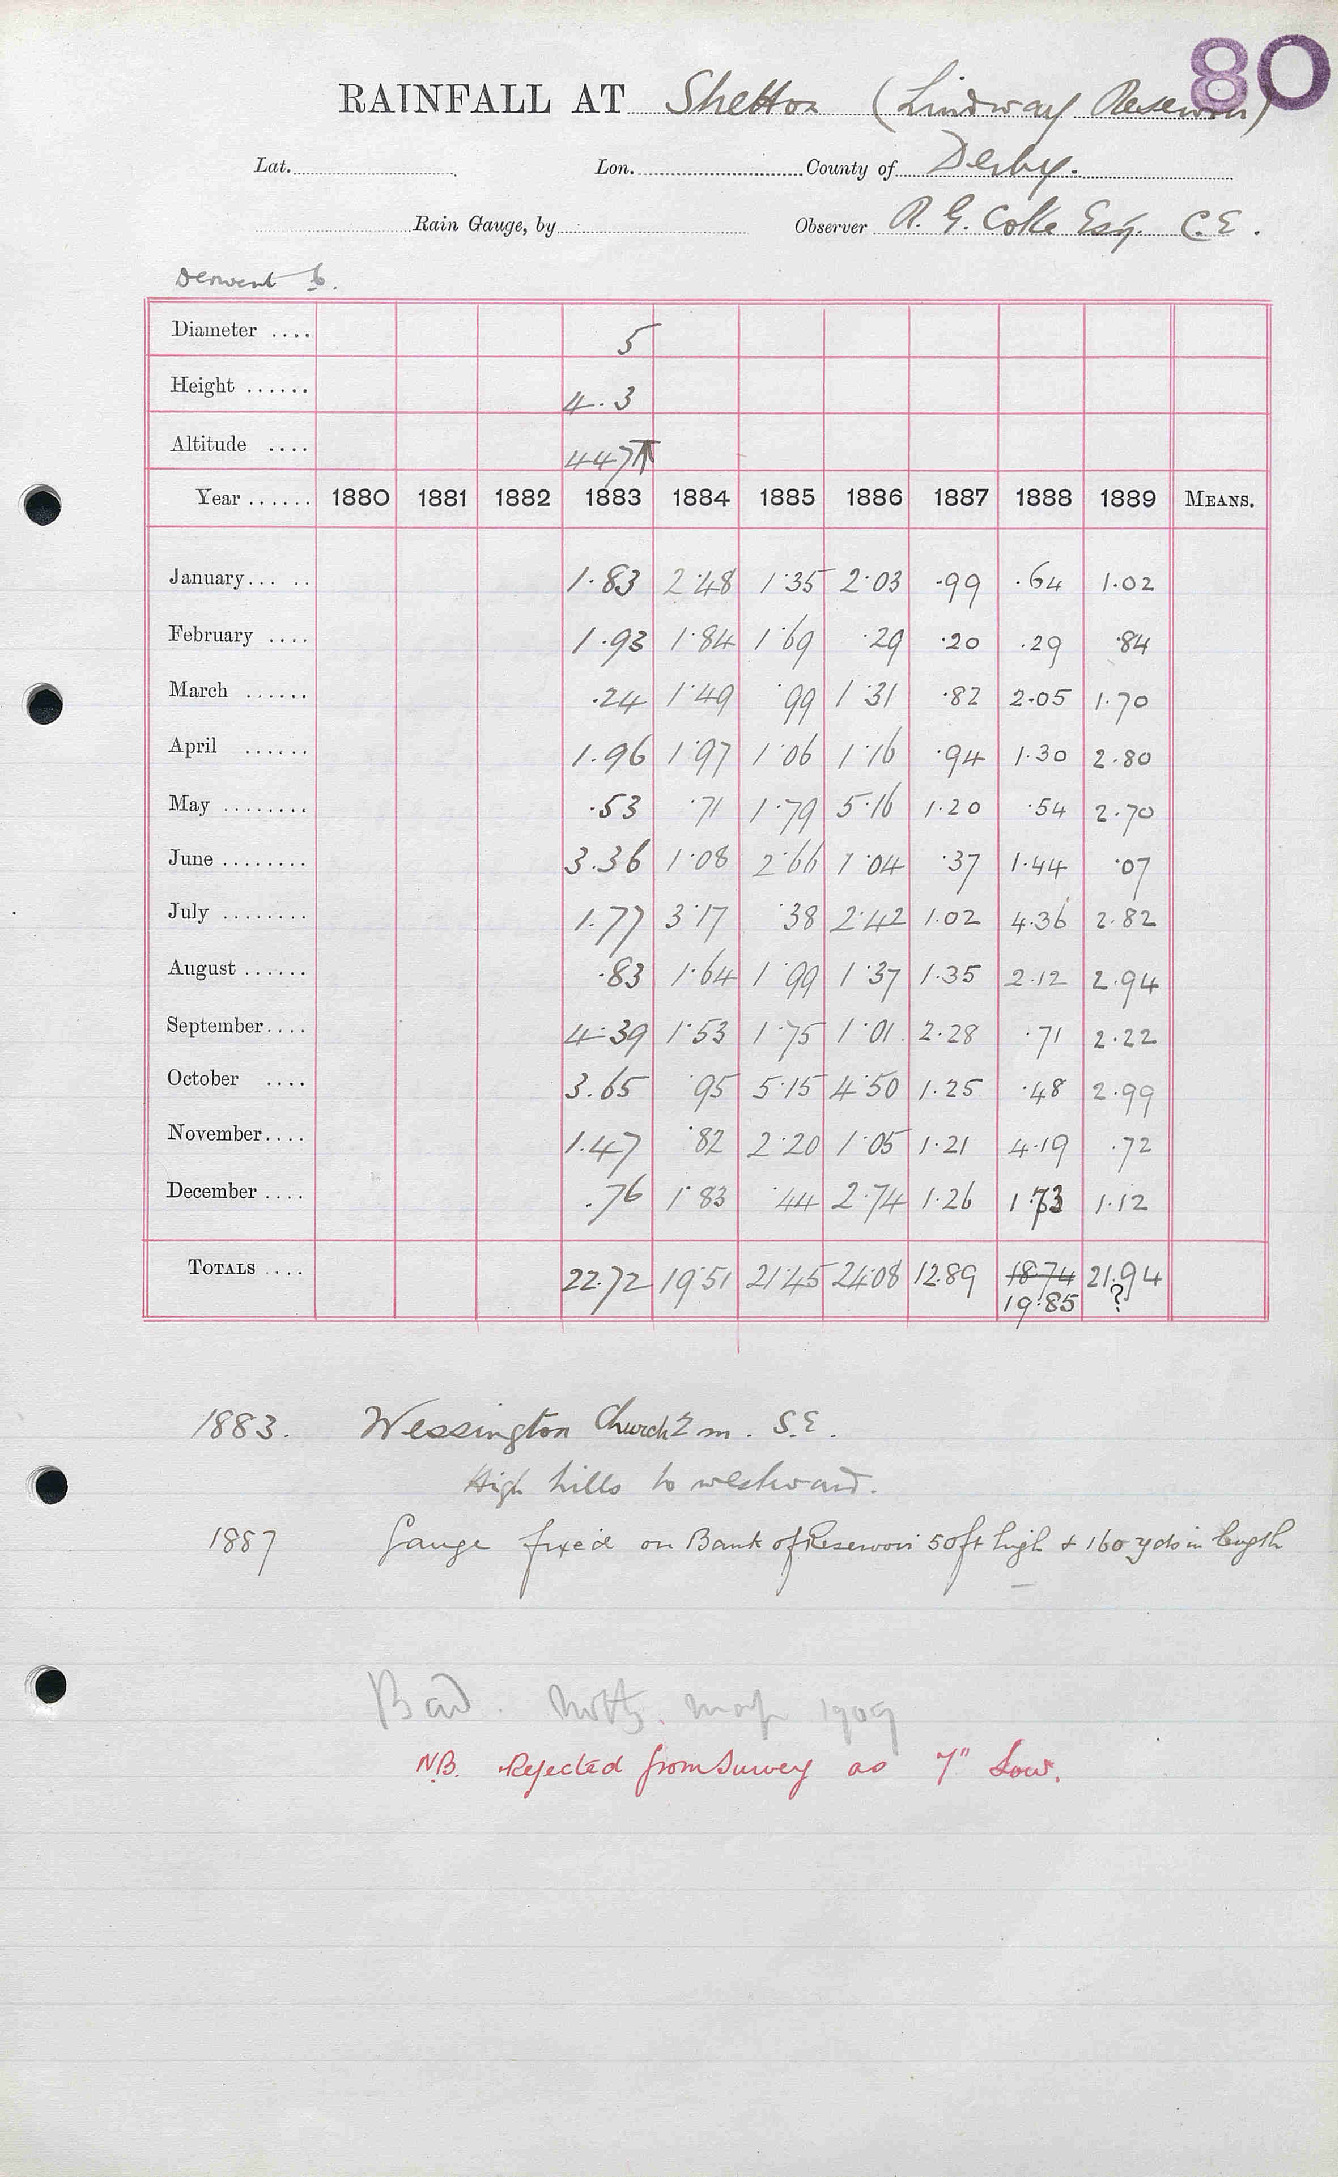 80
RAINFALL AT Shetton (Lindway Reservoir)
Lat. Lon. County of Derby.
Rain Gauge, by Observer R. G. Coke Esq. C.E.
Derwent b.
Diameter .... 5
Height ...... 4.3
Altitude .... 447↑
Year ...... 1880 1881 1882 1883 1884 1885 1886 1887 1888 1889 MEANS.
January... .. 1.83 2.48 1.35 2.03 .99 .64 1.02
February .... 1.93 1.84 1.69 .29 .20 .29 .84
March ...... .24 1.49 .99 1.31 .82 2.05 1.70
April ...... 1.96 1.97 1.06 1.16 .94 1.30 2.80
May ........ .53 .71 1.79 5.16 1.20 .54 2.70
June ........ 3.36 1.08 2.66 1.04 .37 1.44 .07
July ........ 1.77 3.17 .38 2.42 1.02 4.36 2.82
August ...... .83 1.64 1.99 1.37 1.35 2.12 2.94
September.... 4.39 1.53 1.75 1.01 2.28 .71 2.22
October .... 3.65 .95 5.15 4.50 1.25 .48 2.99
November.... 1.47 .82 2.20 1.05 1.21 4.19 .72
December .... .76 1.83 .44 2.74 1.26 1.73 1.12
TOTALS .... 22.72 19.51 21.45 24.08 12.89 18.74 21.94
19.85 ?
1883. Wessington Church 2 m. S.E.
High hills to westward.
1887 Gauge fixed on Bank of Reservoir 50ft high & 160 yds in length
Bad. Notts. map 1909
N.B. Rejected from Survey as 7" Low.